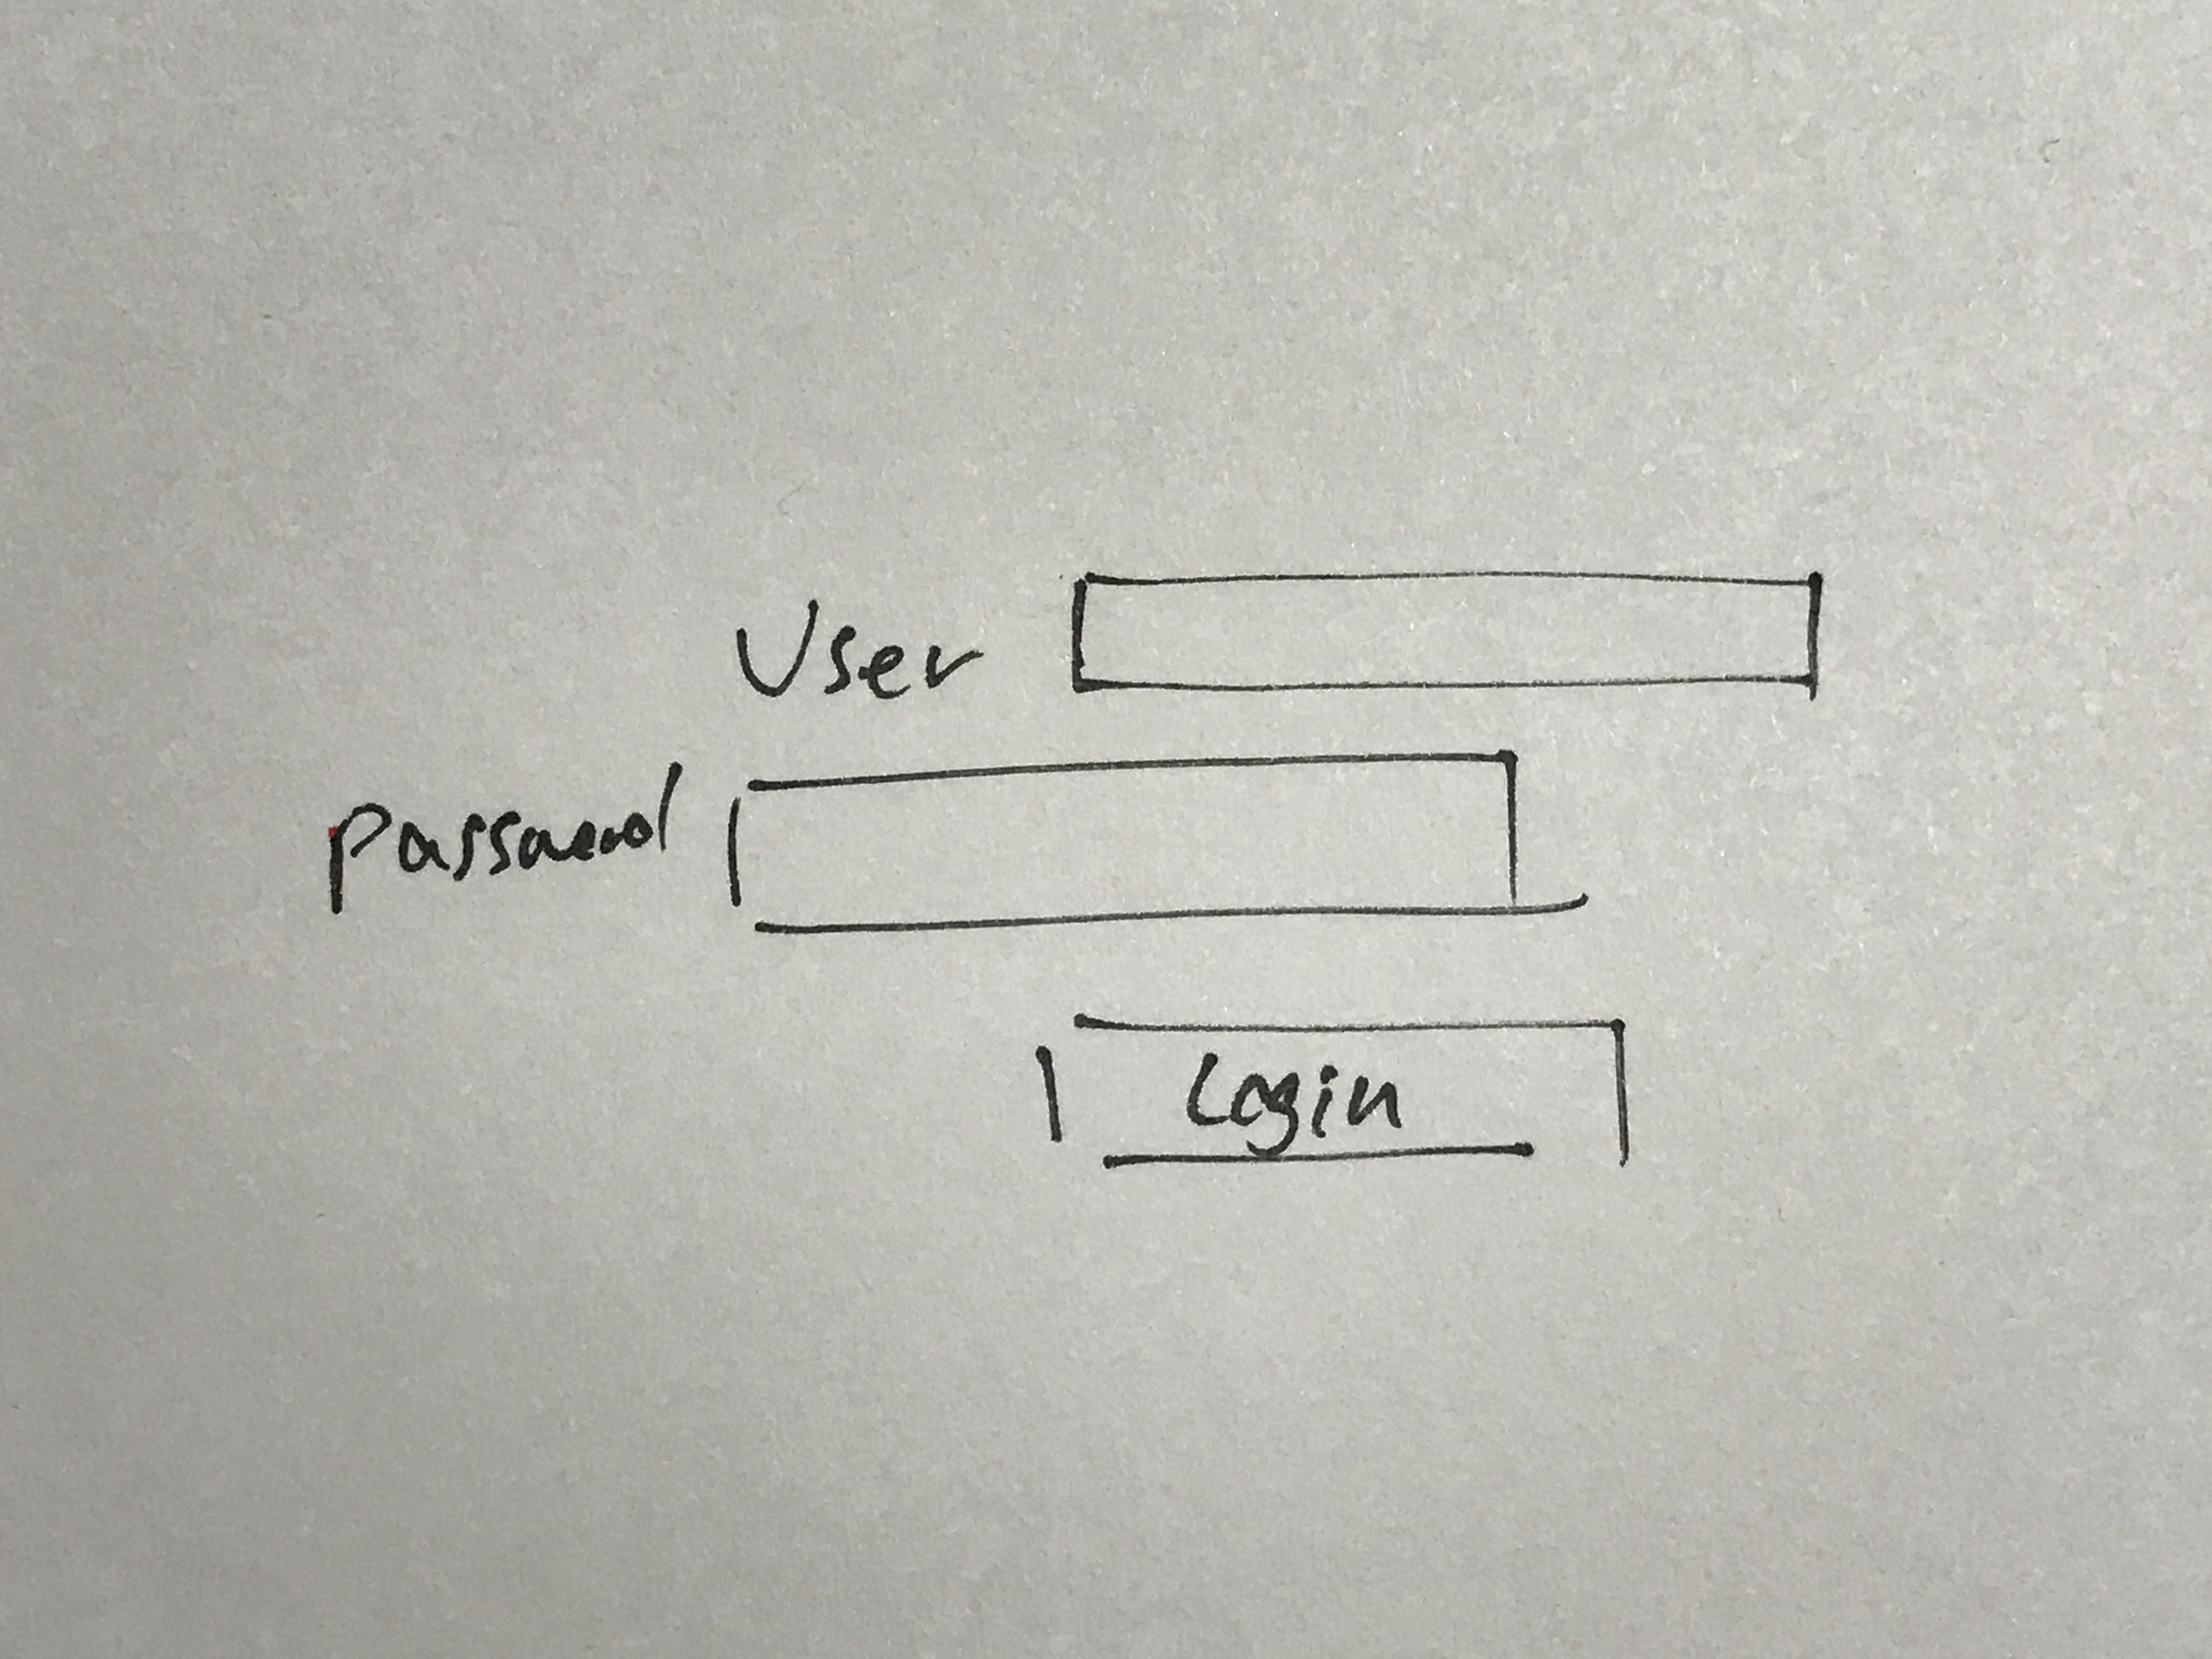 User
Password
Login